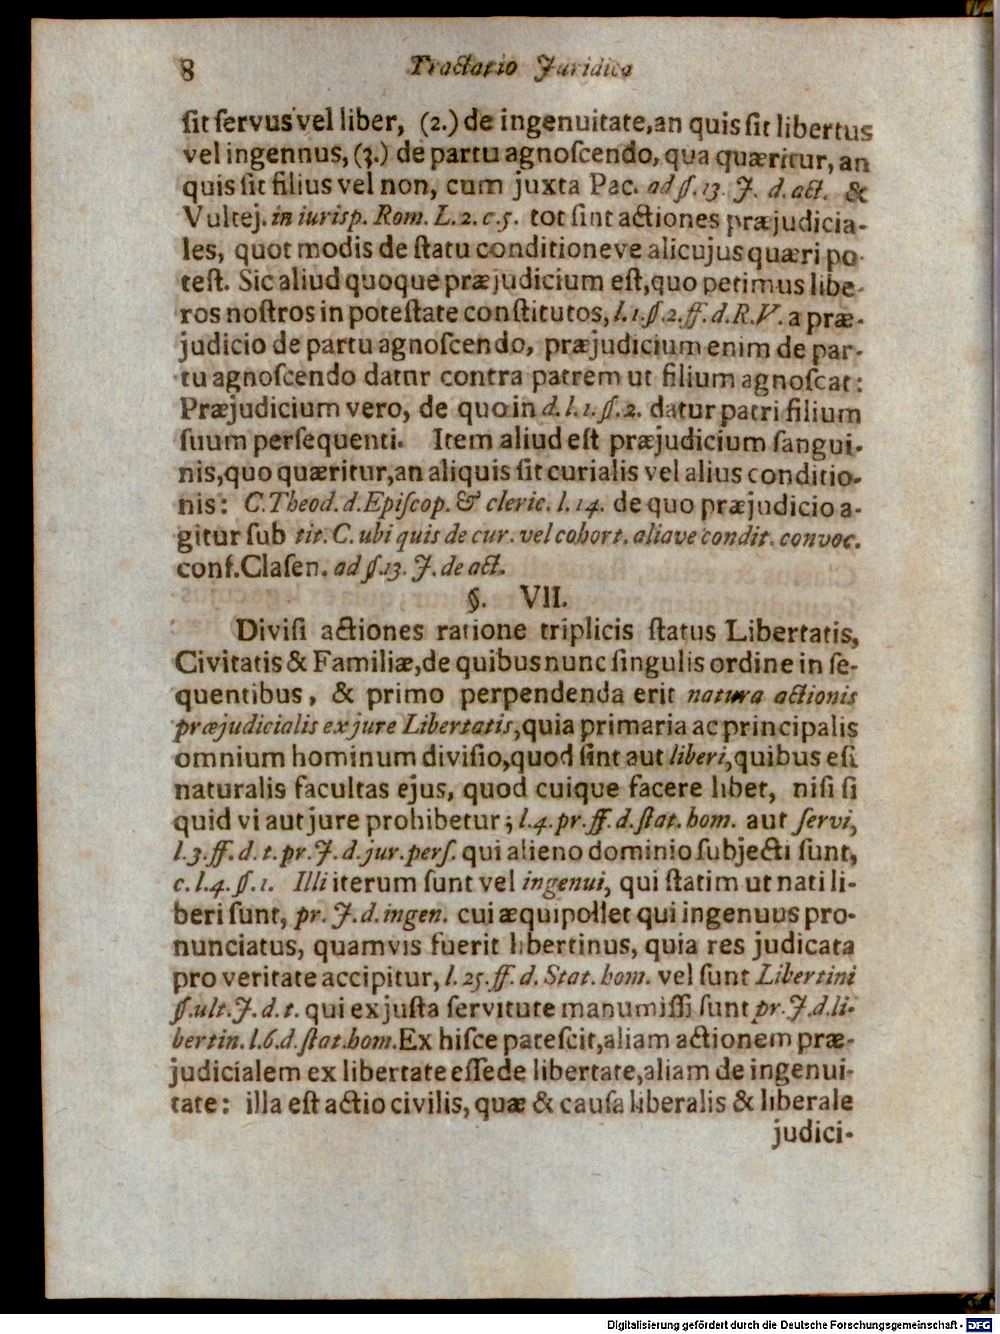 8 Tractatio Juridica
sit servus vel liber, (2.) de ingenuitate, an quis sit libertus
vel ingennus, (3.) de partu agnoscendo, qua quæritur, an
quis sit filius vel non, cum juxta Pac. ad §. 13. J. d. act. &
Vultej. in iurisp. Rom. L. 2. c. 5. tot sint actiones præjudicia-
les, quot modis de statu conditioneve alicujus quæri po-
test. Sic aliud quoque præjudicium est, quo petimus libe-
ros nostros in potestate constitutos, l. 1. §. 2. ff. d. R. V. a præ-
judicio de partu agnoscendo, præjudicium enim de par-
tu agnoscendo datnr contra patrem ut filium agnoscat:
Præjudicium vero, de quo in d. l. 1. §. 2. datur patri filium
suum persequenti. Item aliud est præjudicium sangui-
nis, quo quæritur, an aliquis sit curialis vel alius conditio-
nis: C. Theod. d. Episcop. & cleric. l. 14. de quo præjudicio a-
gitur sub tit. C. ubi quis de cur. vel cohort. aliave condit. convoc.
conf. Clasen. ad §. 13. J. de act.
§. VII.
Divisi actiones ratione triplicis status Libertatis,
Civitatis & Familiæ, de quibus nunc singulis ordine in se-
quentibus, & primo perpendenda erit natura actionis
præjudicialis ex jure Libertatis, quia primaria ac principalis
omnium hominum divisio, quod sint aut liberi, quibus est
naturalis facultas ejus, quod cuique facere libet, nisi si
quid vi aut jure prohibetur; l. 4. pr. ff. d. stat. hom. aut servi,
l. 3. ff. d. t. pr. J. d. jur. pers. qui alieno dominio subjecti sunt,
c. l. 4. §. 1. Illi iterum sunt vel ingenui, qui statim ut nati li-
beri sunt, pr. J. d. ingen. cui æquipollet qui ingenuus pro-
nunciatus, quamvis fuerit libertinus, quia res judicata
pro veritate accipitur, l. 25. ff. d. Stat. hom. vel sunt Libertini
§. ult. J. d. t. qui ex justa servitute manumissi sunt pr. J. d. li-
bertin. l. 6. d. stat. hom. Ex hisce patescit, aliam actionem præ-
judicialem ex libertate esse de libertate, aliam de ingenui-
tate: illa est actio civilis, quæ & causa liberalis & liberale
judici-
Digitalisierung gefördert durch die Deutsche Forschungsgemeinschaft - DFG